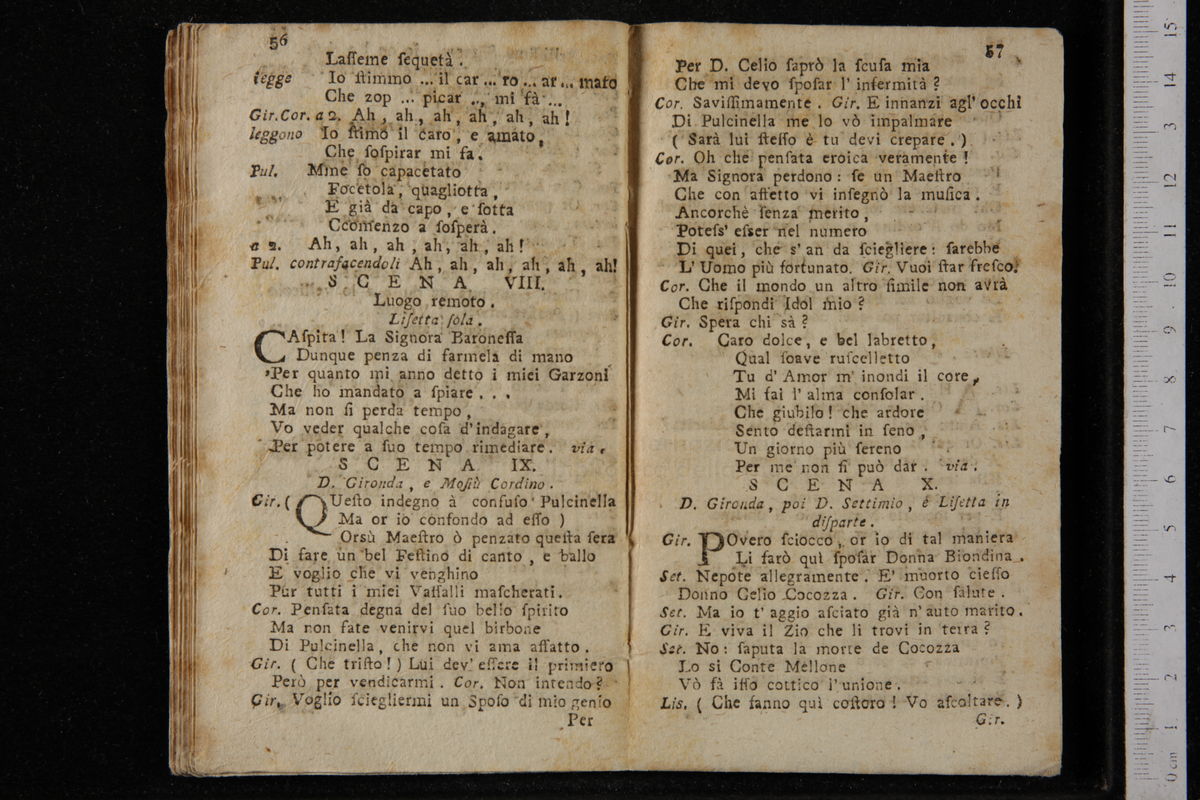 56
Laſſeme ſequetà.
legge Io ſtimmo ... il car ... ro ... ar ... mato
Che zop ... picar ... mi fà ...
Gir. Cor. a 2. Ah, ah, ah, ah, ah, ah!
leggono Io ſtimo il caro, e amato,
Che ſoſpirar mi fa.
Pul. Mme ſo capacetato
Focetola, quagliotta,
E già da capo, e ſotta
Ccomenzo a ſoſperà.
a 2. Ah, ah, ah, ah, ah, ah!
Pul. contrafacendoli Ah, ah, ah, ah, ah, ah!
SCENA VIII.
Luogo remoto.
Liſetta ſola.
CAſpita! La Signora Baroneſſa
Dunque penza di farmela di mano
Per quanto mi anno detto i miei Garzoni
Che ho mandato a ſpiare...
Ma non ſi perda tempo,
Vo veder qualche coſa d'indagare,
Per potere a ſuo tempo rimediare. via.
SCENA IX.
D. Gironda, e Moſiù Cordino.
Gir. (QUeſto indegno à confuſo Pulcinella
Ma or io confondo ad eſſo)
Orsù Maeſtro ò penzato queſta ſera
Di fare un bel Feſtino di canto, e ballo
E voglio che vi venghino
Pur tutti i miei Vaſſalli maſcherati.
Cor. Penſata degna del ſuo bello ſpirito
Ma non fate venirvi quel birbone
Di Pulcinella, che non vi ama affatto.
Gir. (Che triſto!) Lui dev' eſſere il primiero
Però per vendicarmi. Cor. Non intendo?
Gir. Voglio ſciegliermi un Spoſo di mio genio
Per
57
Per D. Celio ſaprò la ſcuſa mia
Che mi devo ſpoſar l' infermità?
Cor. Saviſſimamente. Gir. E innanzi agl' occhi
Di Pulcinella me lo vò impalmare
(Sarà lui ſteſſo è tu devi crepare.)
Cor. Oh che penſata eroica veramente!
Ma Signora perdono: ſe un Maeſtro
Che con affetto vi inſegnò la muſica.
Ancorchè ſenza merito,
Poteſs' eſſer nel numero
Di quei, che s' an da ſciegliere: ſarebbe
L' Uomo più fortunato. Gir. Vuoi ſtar freſco.
Cor. Che il mondo un altro ſimile non avrà
Che riſpondi Idol mio?
Gir. Spera chi sà?
Cor. Caro dolce, e bel labretto,
Qual ſoave ruſcelletto
Tu d' Amor m' inondi il core,
Mi fai l' alma conſolar.
Che giubilo! che ardore
Sento deſtarmi in ſeno,
Un giorno più ſereno
Per me non ſi può dar. via.
SCENA X.
D. Gironda, poi D. Settimio, e Liſetta in
diſparte.
Gir. POvero ſciocco, or io di tal maniera
Li farò quì ſpoſar Donna Biondina.
Set. Nepote allegramente. E' muorto cieſſo
Donno Celio Cocozza. Gir. Con ſalute.
Set. Ma io t' aggio aſciato già n' auto marito.
Gir. E viva il Zio che li trovi in terra?
Set. No: ſaputa la morte de Cocozza
Lo si Conte Mellone
Vò fà iſſo cottico l' unione.
Lis. (Che fanno quì coſtoro! Vo aſcoltare.)
Gir.